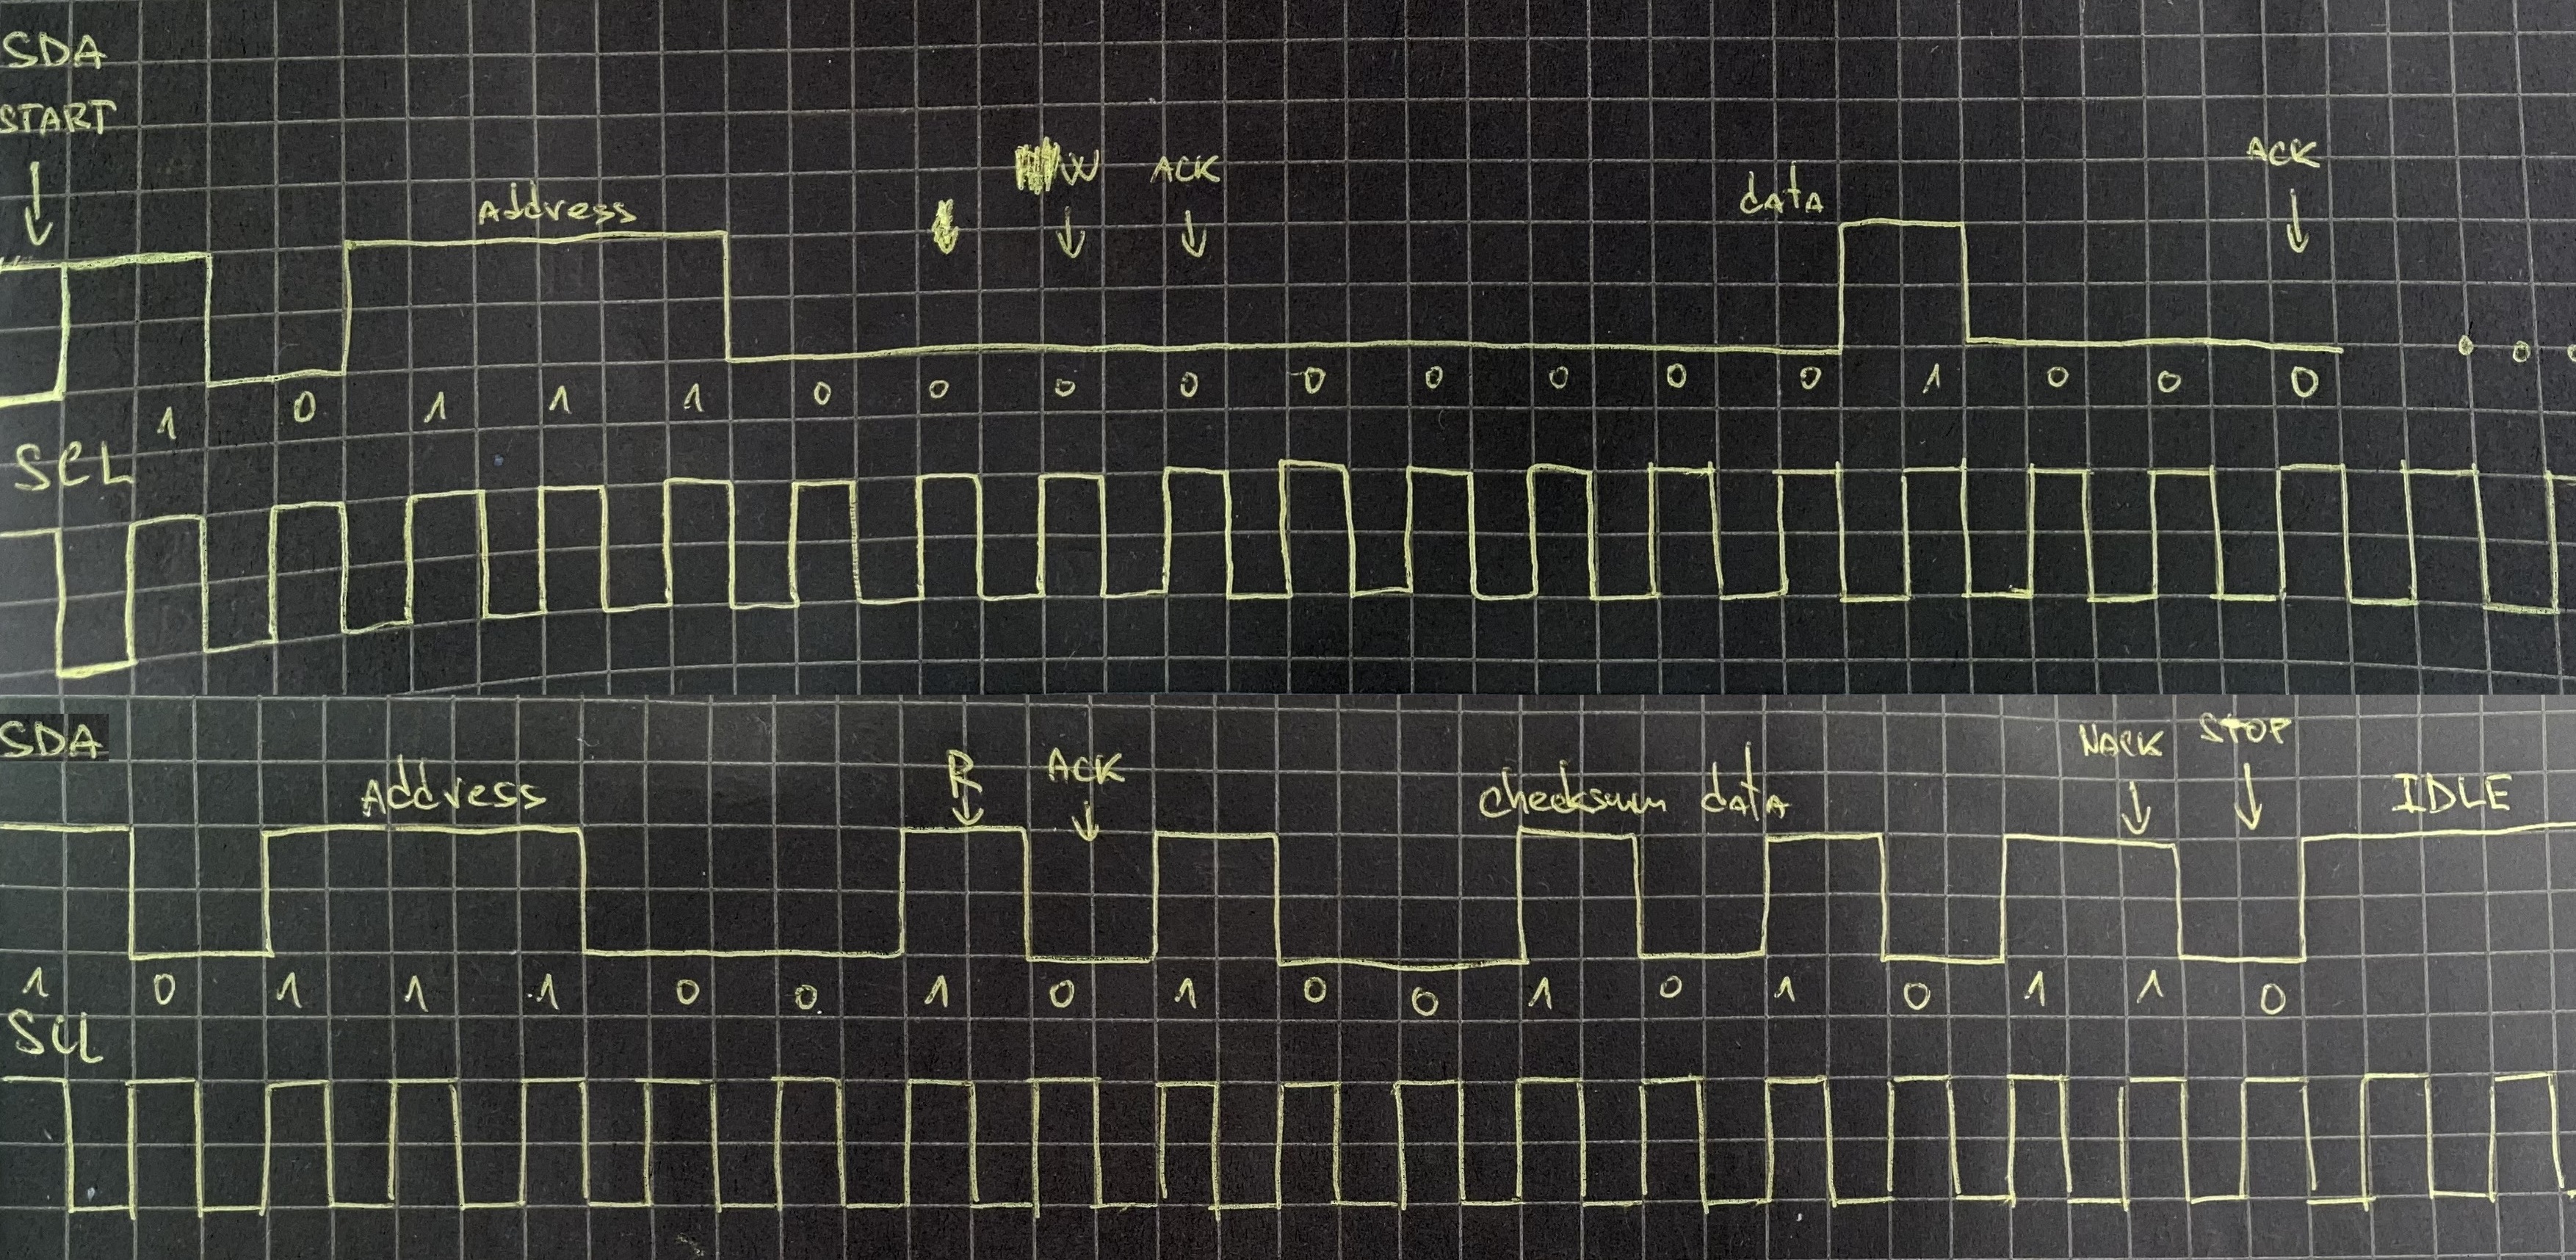 SDA
START
Address
W ACK
data
ACK
1 0 1 1 1 0 0 0 0 0 0 0 0 0 1 0 0 0
SCL
SDA
Address
R ACK
checksum data
NACK STOP
IDLE
1 0 1 1 1 0 0 1 0 1 0 0 1 0 1 0 1 1 0
SCL